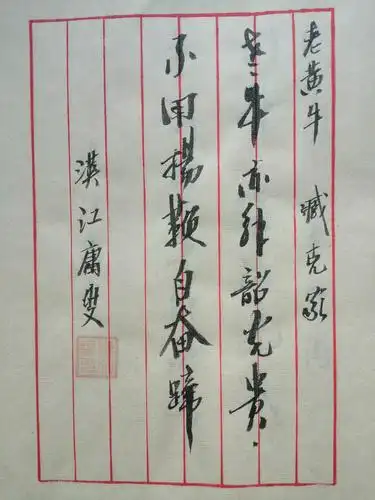 老黄牛 臧克家
老牛亦解韶光贵
不用扬鞭自奋蹄
漢江庸叟